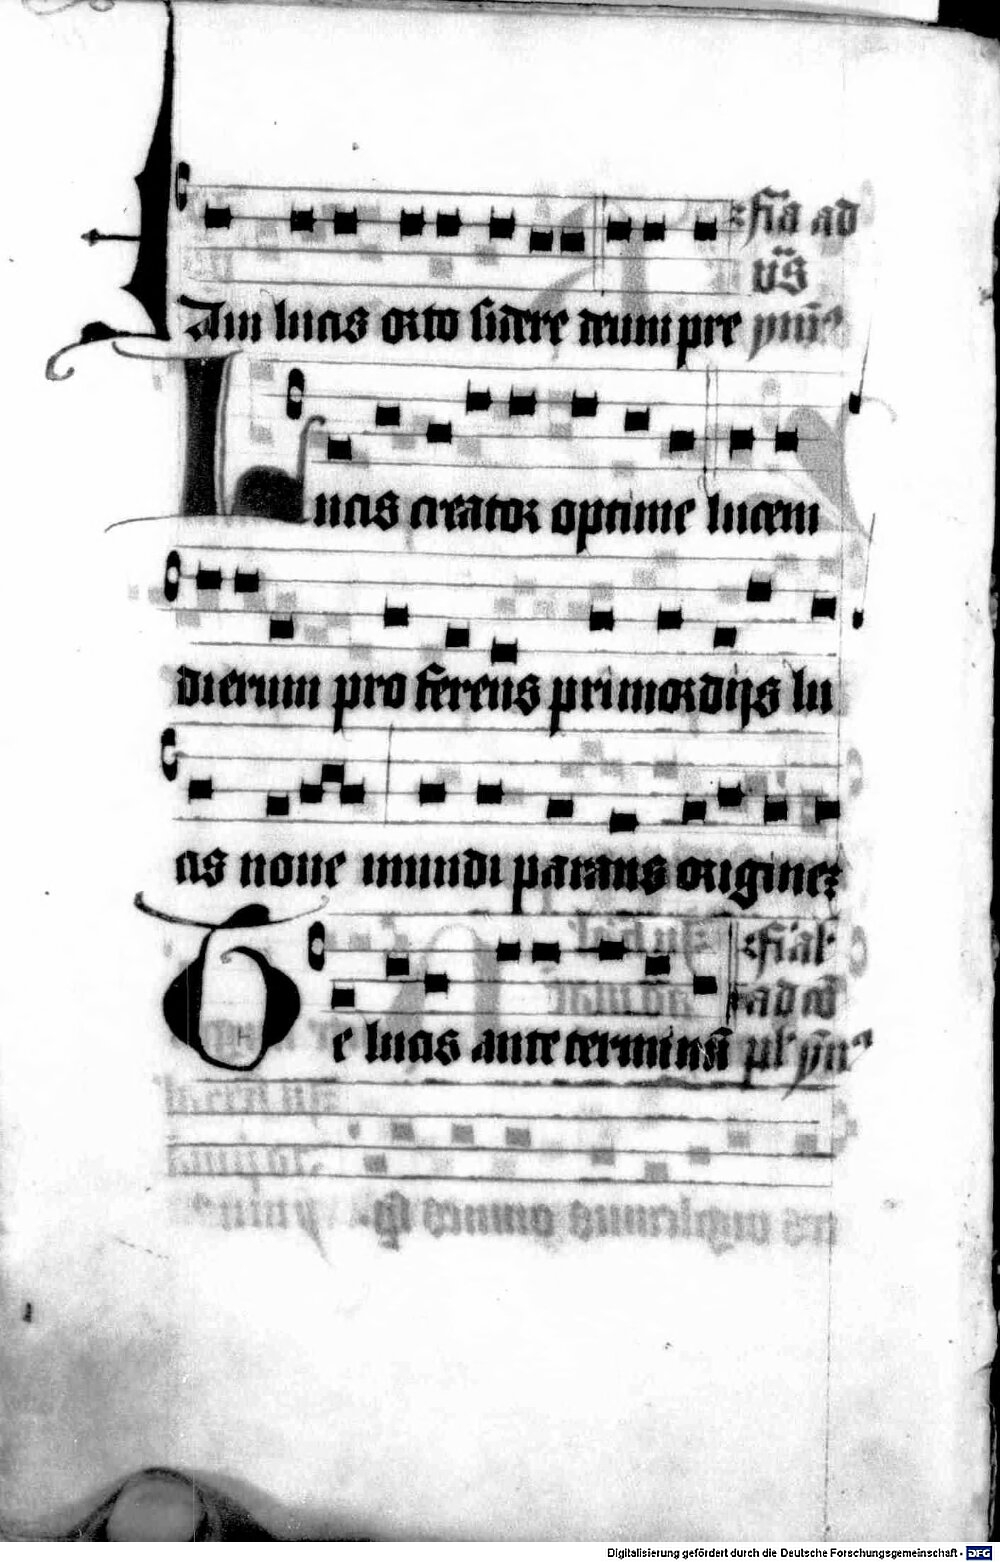 Iam lucis orto sidere deum pre
Lucis creator optime lucem
dierum pro ferens primordijs lu
cis noue mundi parans origineꝫ
Te lucis ante terminū
Digitalisierung gefördert durch die Deutsche Forschungsgemeinschaft - DFG